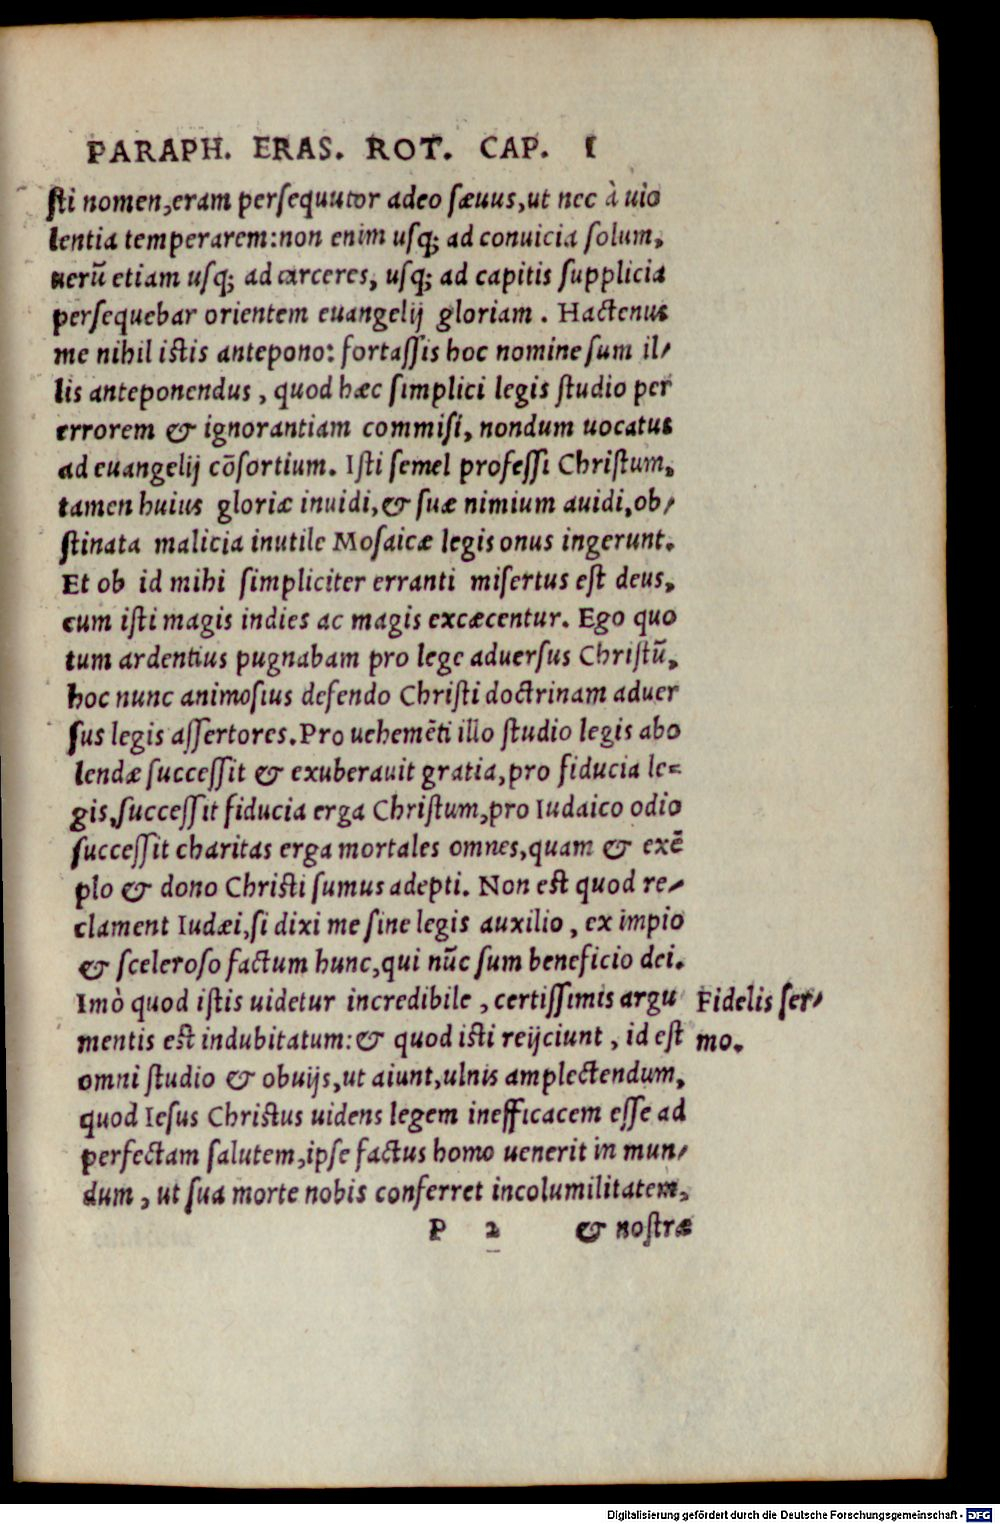 PARAPH. ERAS. ROT. CAP. I
sti nomen, eram persequutor adeo sæuus, ut nec à uio
lentia temperarem: non enim usq; ad conuicia solum,
uerũ etiam usq; ad carceres, usq; ad capitis supplicia
persequebar orientem euangelij gloriam. Hactenus
me nihil istis antepono: fortassis hoc nomine sum il/
lis anteponendus, quod hæc simplici legis studio per
errorem & ignorantiam commisi, nondum uocatus
ad euangelij cõsortium. Isti semel professi Christum,
tamen huius gloriæ inuidi, & suæ nimium auidi, ob/
stinata malicia inutile Mosaicæ legis onus ingerunt.
Et ob id mihi simpliciter erranti misertus est deus,
cum isti magis indies ac magis excæcentur. Ego quo
tum ardentius pugnabam pro lege aduersus Christũ,
hoc nunc animosius defendo Christi doctrinam aduer
sus legis assertores. Pro uehemẽti illo studio legis abo
lendæ successit & exuberauit gratia, pro fiducia le=
gis, successit fiducia erga Christum, pro Iudaico odio
successit charitas erga mortales omnes, quam & exẽ
plo & dono Christi sumus adepti. Non est quod re/
clament Iudæi, si dixi me sine legis auxilio, ex impio
& sceleroso factum hunc, qui nũc sum beneficio dei.
Imò quod istis uidetur incredibile, certissimis argu
mentis est indubitatum: & quod isti reijciunt, id est
omni studio & obuijs, ut aiunt, ulnis amplectendum,
quod Iesus Christus uidens legem inefficacem esse ad
perfectam salutem, ipse factus homo uenerit in mun/
dum, ut sua morte nobis conferret incolumilitatem,
P 2 & nostræ
Fidelis ser/
mo.
Digitalisierung gefördert durch die Deutsche Forschungsgemeinschaft - DFG